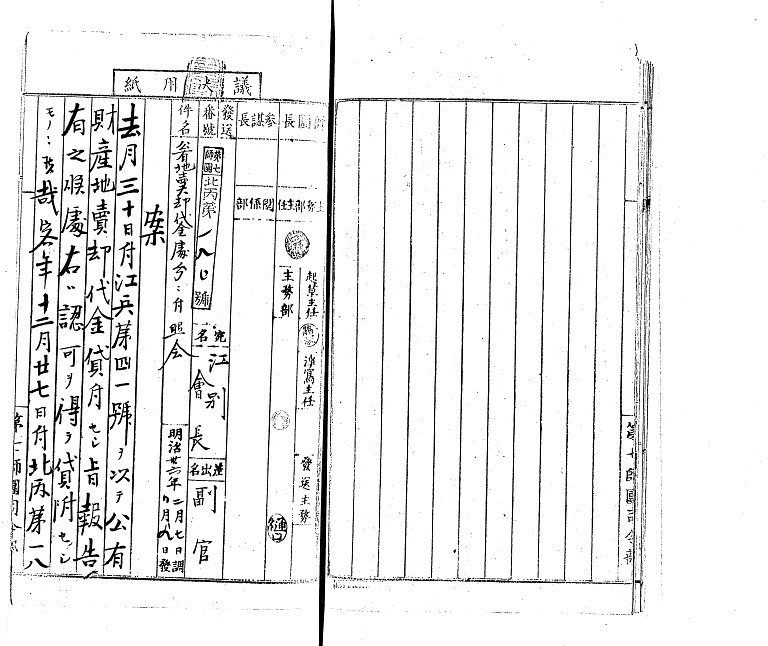 議決用紙
師團長
參謀長
主務部主任
關係部
起草主任
淨寫主任
發送主務
主務部
發送番號
第七師團北丙第一八〇號
宛名
江別會長
差出名
副官
件名
公有地賣却代金處分ニ付照会
明治廿六年二月七日調
月九日發
案
去月三十日付江兵第四一號ヲ以テ公有
財産地賣却代金貸付セシ旨報告
有之候處右ハ認可ヲ得テ貸附セシ
モノニ候哉客年十二月廿七日付北丙第一八
第七師團司令部
第七師團司令部